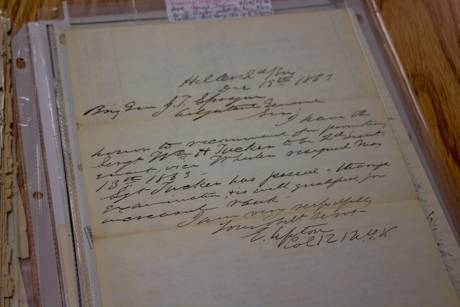 Dec 15th 1863
Brig Gen J. T. Sprague
Adjutant General
Sir, I have the
honor to recommend for promotion
Sergt Wm H Tucker to be 2d Lieut
vice Wheeler resigned Nov
13th 1863
Sgt Tucker has passed
Examination & is well qualified for
rank.
I am very respectfully
Your obt
E. Upton
Col 121 N.Y.V